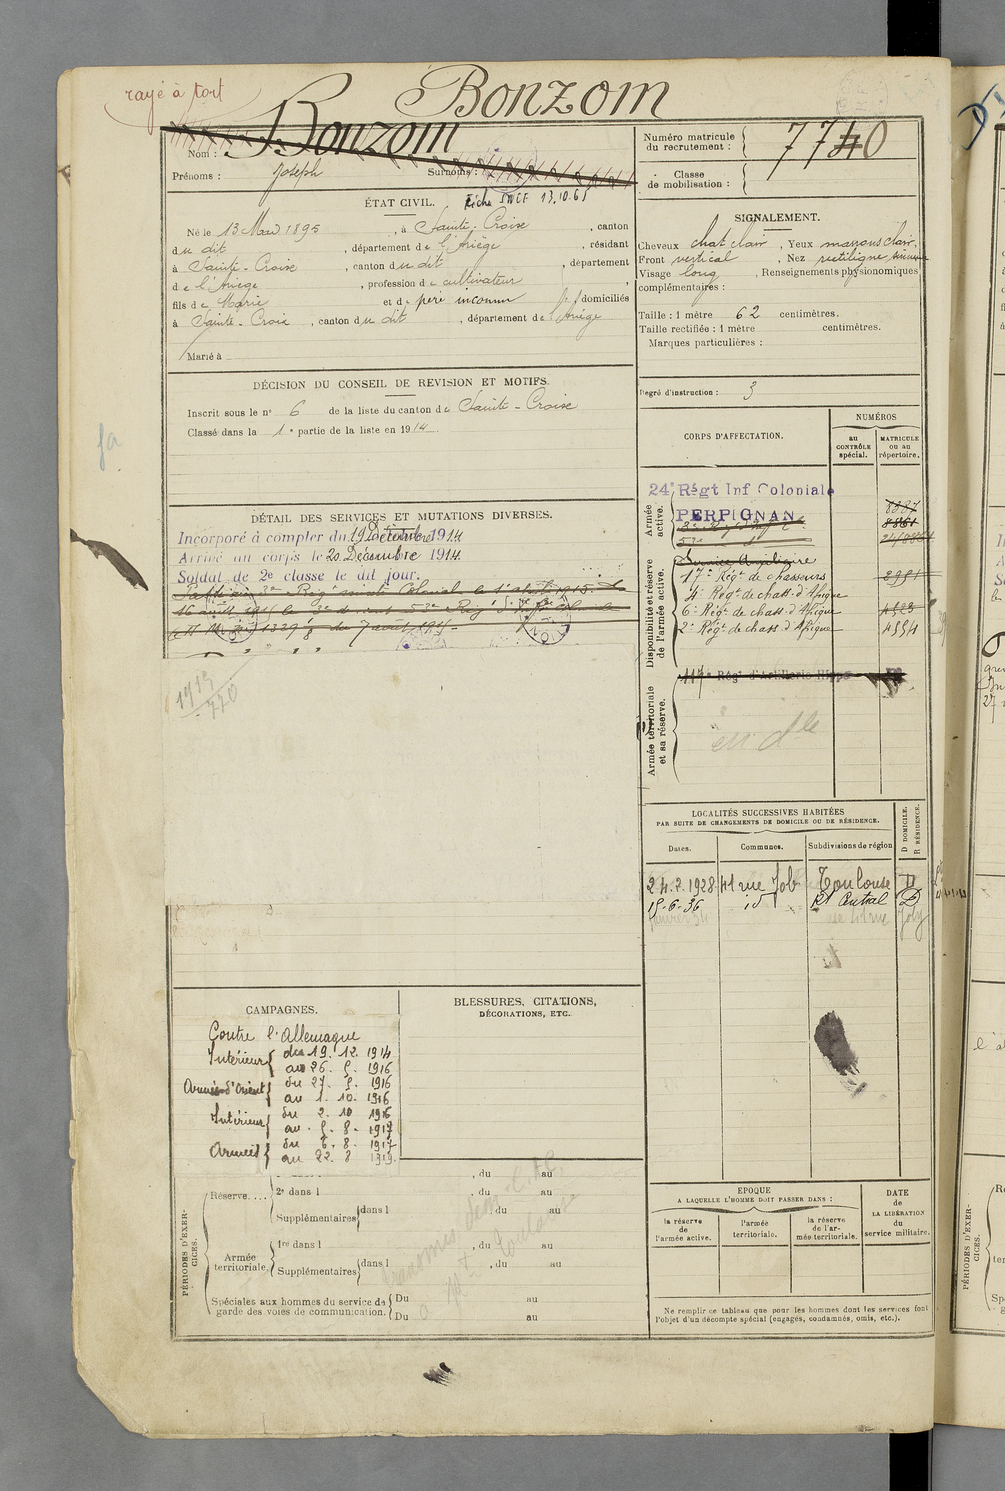 rayé à tort
Bonzom
Bonzom
Nom :
Prénoms : Joseph
Surnoms :
Numéro matricule
du recrutement : 7740
Classe
de mobilisation :
ÉTAT CIVIL.
Fiche INCF 13.10.65
Né le 13 Mars 1895, à Sainte-Croix, canton
du dit, département de l'Ariège, résidant
à Sainte-Croix, canton du dit, département
de l'Ariège, profession de cultivateur,
fils de Marie et de père inconnu domiciliés
à Sainte-Croix, canton du dit, département de l'Ariège
Marié à
SIGNALEMENT.
Cheveux chat clair, Yeux marrons clair,
Front vertical, Nez rectiligne
Visage long, Renseignements physionomiques
complémentaires :
Taille : 1 mètre 62 centimètres.
Taille rectifiée : 1 mètre centimètres.
Marques particulières :
Degré d'instruction : 3
DÉCISION DU CONSEIL DE REVISION ET MOTIFS.
Inscrit sous le n° 6 de la liste du canton de Sainte-Croix
Classé dans la 1e partie de la liste en 1914
CORPS D'AFFECTATION.
NUMÉROS
au
CONTRÔLE
spécial.
MATRICULE
ou au
répertoire.
Armée
active.
24e Régt Inf Coloniale
PERPIGNAN
Disponibilité et réserve
de l'armée active.
Service Auxiliaire
17e Régt de chasseurs 2951
4e Régt de chass. d'Afrique
6e Régt de chass. d'Afrique
2e Régt de chass. d'Afrique
Armée territoriale
et sa réserve.
117e Régt d'Artillerie Hippo
en dle
DÉTAIL DES SERVICES ET MUTATIONS DIVERSES.
Incorporé à compter du 19 Décembre 1914
Arrivé au corps le 20 Décembre 1914.
Soldat de 2e classe le dit jour.
Passé au 3e Régiment Colonial le 1er 1915.
16 août 1915 le 3e 53e Régt
du 7 août 1915
LOCALITÉS SUCCESSIVES HABITÉES
PAR SUITE DE CHANGEMENTS DE DOMICILE OU DE RÉSIDENCE.
Dates.
Communes.
Subdivisions de région
D DOMICILE.
R RÉSIDENCE.
24.2.1928 41 rue Job Toulouse D
15-6-36 id Rt Central D
CAMPAGNES.
Contre l'Allemagne
Intérieur du 19. 12. 1914
au 26. 5. 1916
Armée d'Orient du 27. 5. 1916
au 1. 10. 1916
Intérieur du 2. 10 1916
au 5. 8. 1917
Armées du 6. 8. 1917
au 22. 8 1919.
BLESSURES, CITATIONS,
DÉCORATIONS, ETC.
PÉRIODES D'EXER-
CICES.
, du au
Réserve.... 2e dans l , du au
Supplémentaires dans l du au
Armée
territoriale.
1re dans l , du au
Supplémentaires dans l , du au
Spéciales aux hommes du service de
garde des voies de communication.
Du au
Du au
EPOQUE
A LAQUELLE L'HOMME DOIT PASSER DANS :
la réserve
de
l'armée active.
l'armée
territoriale.
la réserve
de l'ar-
mée territoriale.
DATE
de
LA LIBÉRATION
du
service militaire.
Ne remplir ce tableau que pour les hommes dont les services font
l'objet d'un décompte spécial (engagés, condamnés, omis, etc.).